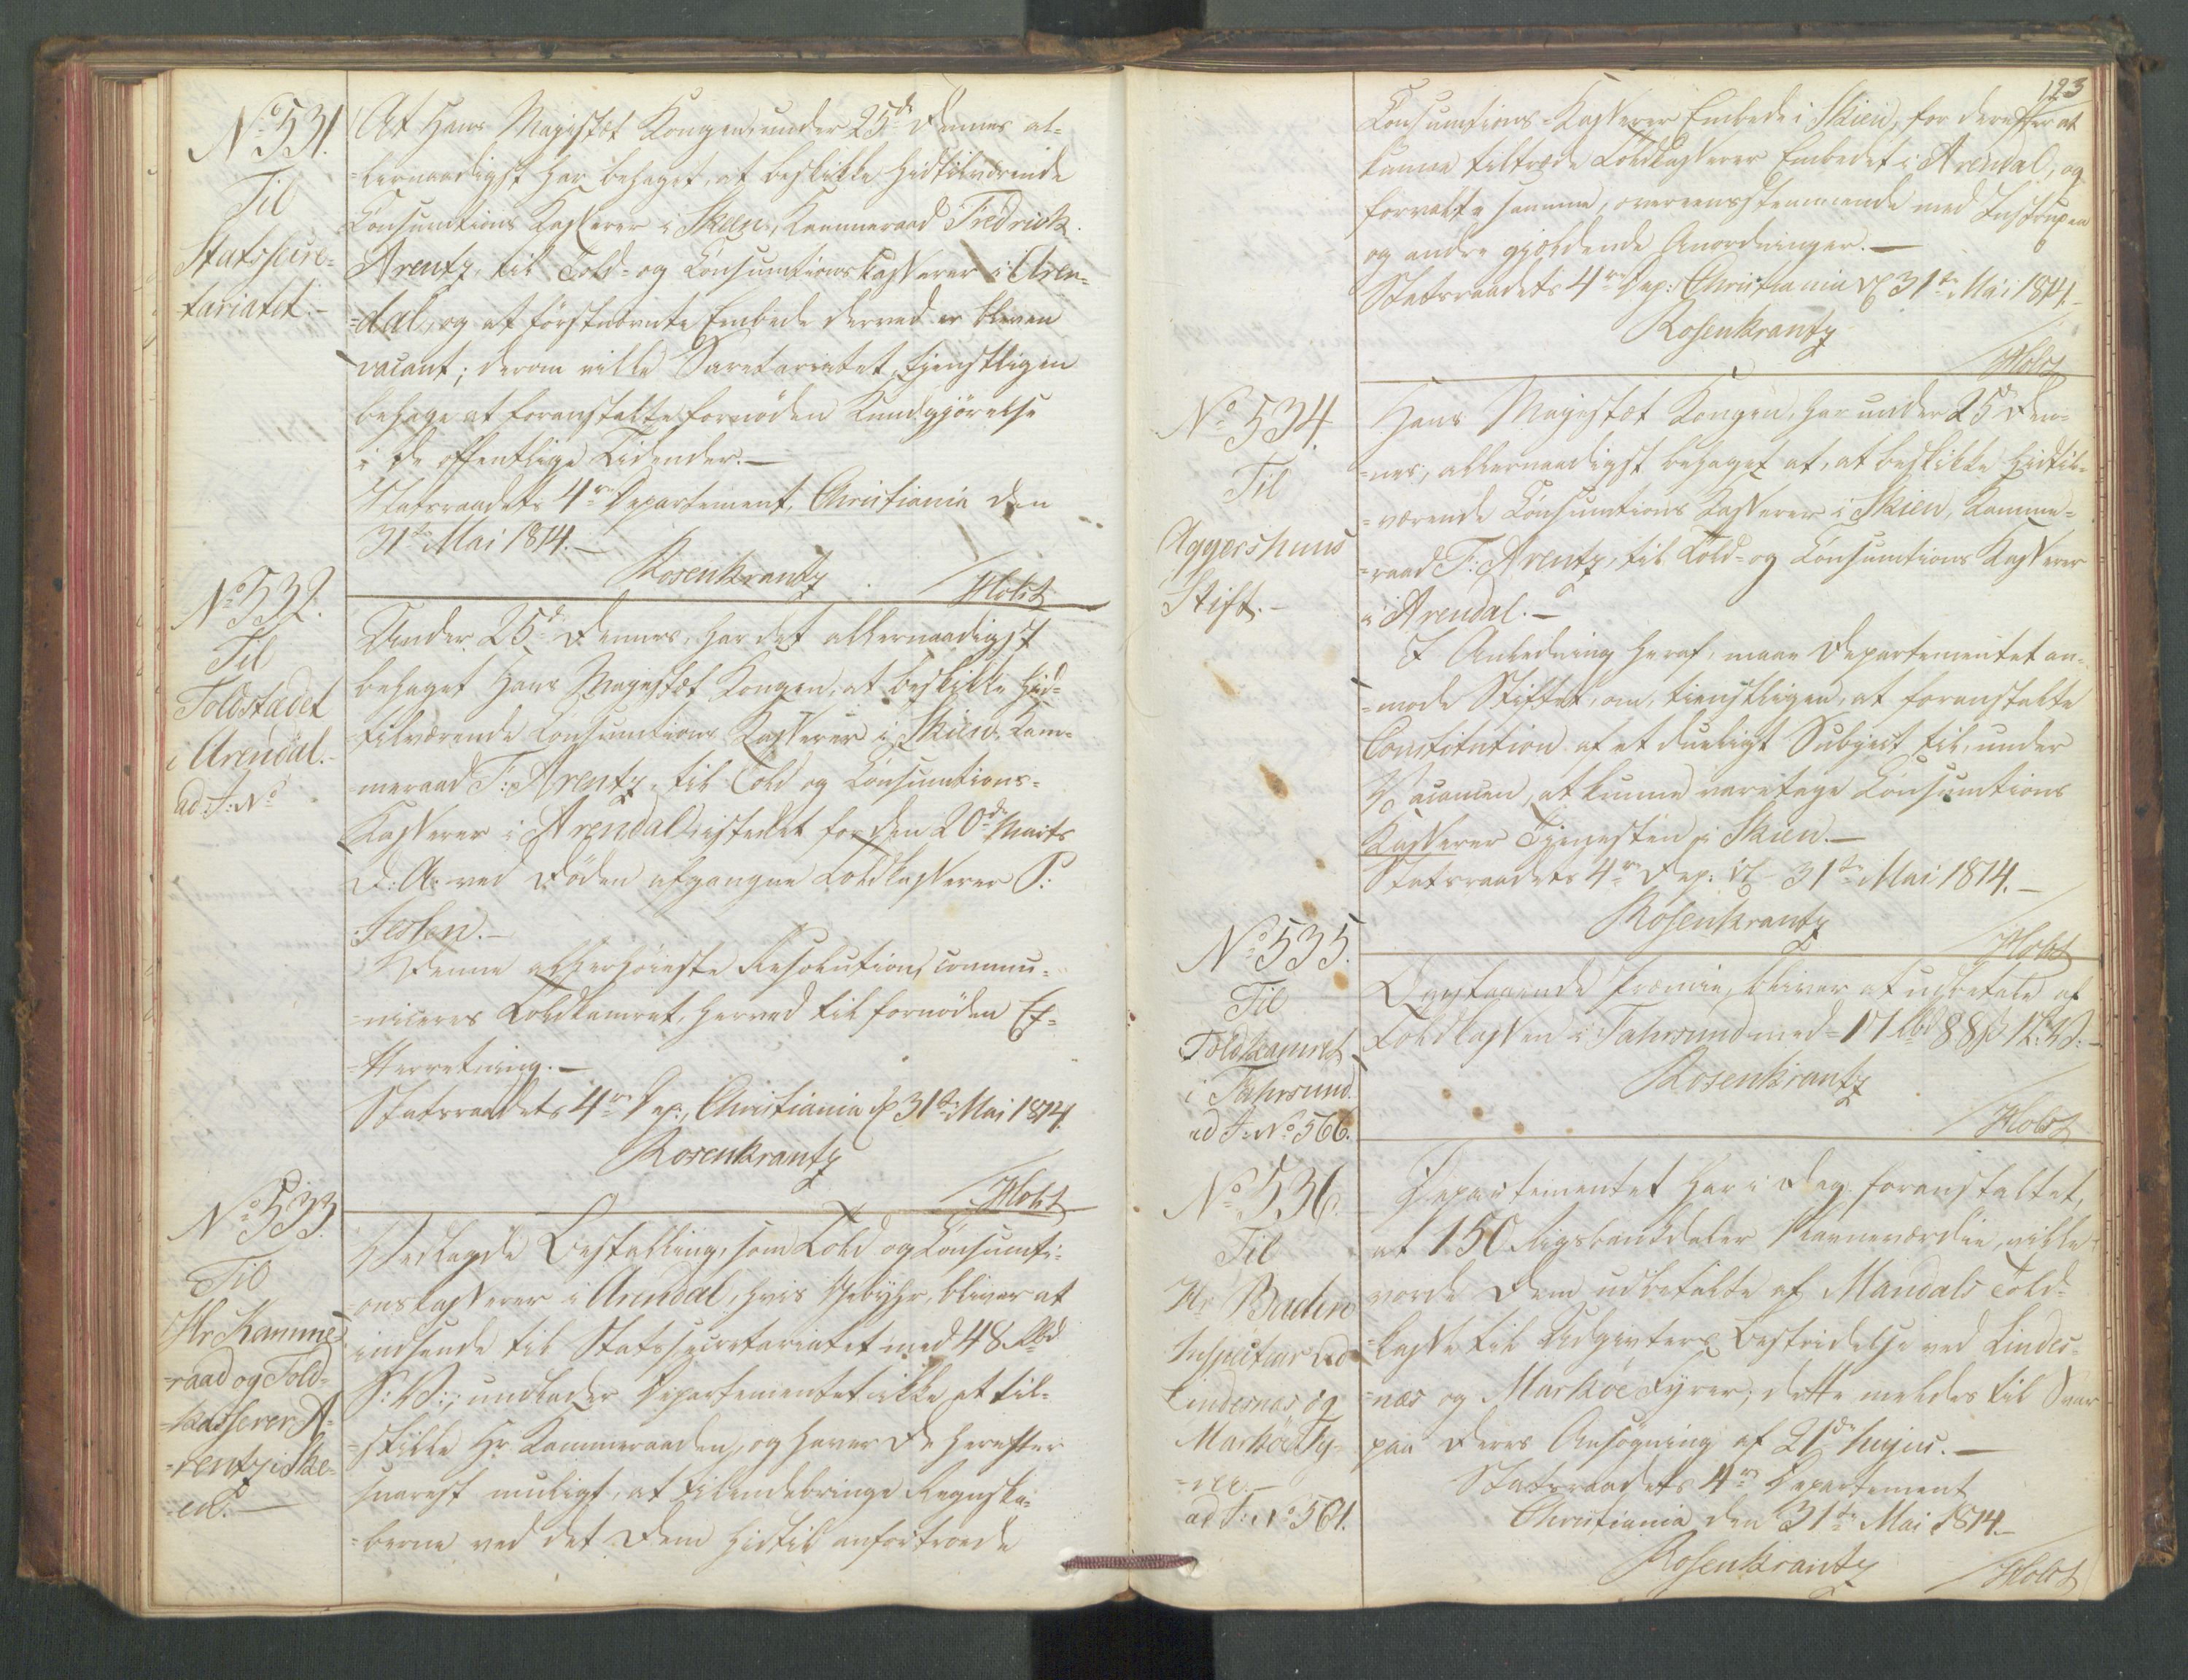 No 531.
Til
Statssecre-
tariatet.-
At Hans Majestæt Kongen, under 25de dennes al-
lernaadigst har behaget, at beskikke hidtilværende
Consumtions Kasserer i Skeen, Kammeraad Fredrick
Arentz, til Told- og Consumtionskasserer i Aren-
dal, og at förstnævnte Embede derved er bleven
vacant; derom ville Secretariatet tjenstligen
behage at foranstalte fornöden Kundgjörelse
i de offentlige Tidender.-
Statsraadets 4re Departement, Christiania den
31te Mai 1814.-
Rosenkrantz
/Holst
No 532.
Til
Toldstædet
i Arendal.-
ad J: No
Under 25de dennes, har det allernaadigst
behaget Hans Majestæt Kongen, at beskikke hid-
tilværende Consumtions Kasserer i Skien, Kam-
meraad F: Arentz, til Told og Consumtions-
Kasserer i Arendal istedet for den 20de Marts
d: A: ved Döden afgangne Toldkasserer P:
Denne allerhöieste Resolution, commu-
niceres Toldkamret, herved til fornöden Ef-
terretning.-
Statsraadets 4re Dep:, Christiania d 31te Mai 1814.
Rosenkrantz
/Holst
No 533.
Til
Hr Kamme-
raad og Told-
kasserer A-
rentz i Ske-
en.-
Vedlagde Bestalling, som Told og Consumti-
onskasserer i Arendal, hvis Gebyhr, bliver at
indsende til Statssecretariatet med 48 Rbd
S: V:; undlader Departementet ikke at til-
stille Hr Kammeraaden, og haver De herefter
snarest muligt, at tilendebringe Regnska-
berne ved det Dem hidtil anfortroede
123
Consumtions-Kasserer Embede i Skien, for derefter at
kunne tiltræde Toldkasserer Embedet i Arendal, og
forvalte samme, overeensstemmende med Instruxen
og andre gjældende Anordninger.-
Statsraadets 4re Dep: Christiania d 31te Mai 1814.-
Rosenkrantz
/Holst
No 534.
Til
Aggershuus
Stift.-
Hans Majestæt Kongen, har under 25de den-
nes, allernaadigst behaget at, at beskikke hidtil-
værende Consumtions Kasserer i Skien, Kamme-
raad F: Arentz, til Told- og Consumtions Kasserer
i Arendal.-
I Anledning heraf, maae Departementet an-
mode Stiftet, om, tienstligen, at foranstalte
Constitution af et dueligt Subject til, under
Vacancen, at kunne varetage Consumtions
Kasserer Tjenesten i Skien.-
Statsraadets 4re Dep: d 31te Mai 1814.-
Rosenkrantz
/Holst
No 535.
Til
Toldkamret
i Fahrsund
ad J: No 566.
Ovenstaaende Præmie, bliver at udbetale af
Toldkassen i Fahrsund med 17 Rbd 88 s N: V:-
Rosenkrantz
/Holst
No 536.
Til
Hr Bruhn
Inspecteur ved
Lindesnæs og
Markøe Fy-
rer.-
ad J: No 561.
Departementet har i Dag foranstaltet,
at 150 Rigsbankdaler Navneværdie, ville
vorde Dem udbetalte af Mandals Told-
kasse til Udgivters Bestridelse ved Lindes-
næs og Markøe Fyrer; dette meldes til Svar
paa Deres Ansögning af 21de hujus.-
Statsraadets 4re Departement
Christiania den 31te Mai 1814.-
Rosenkrantz
/Holst